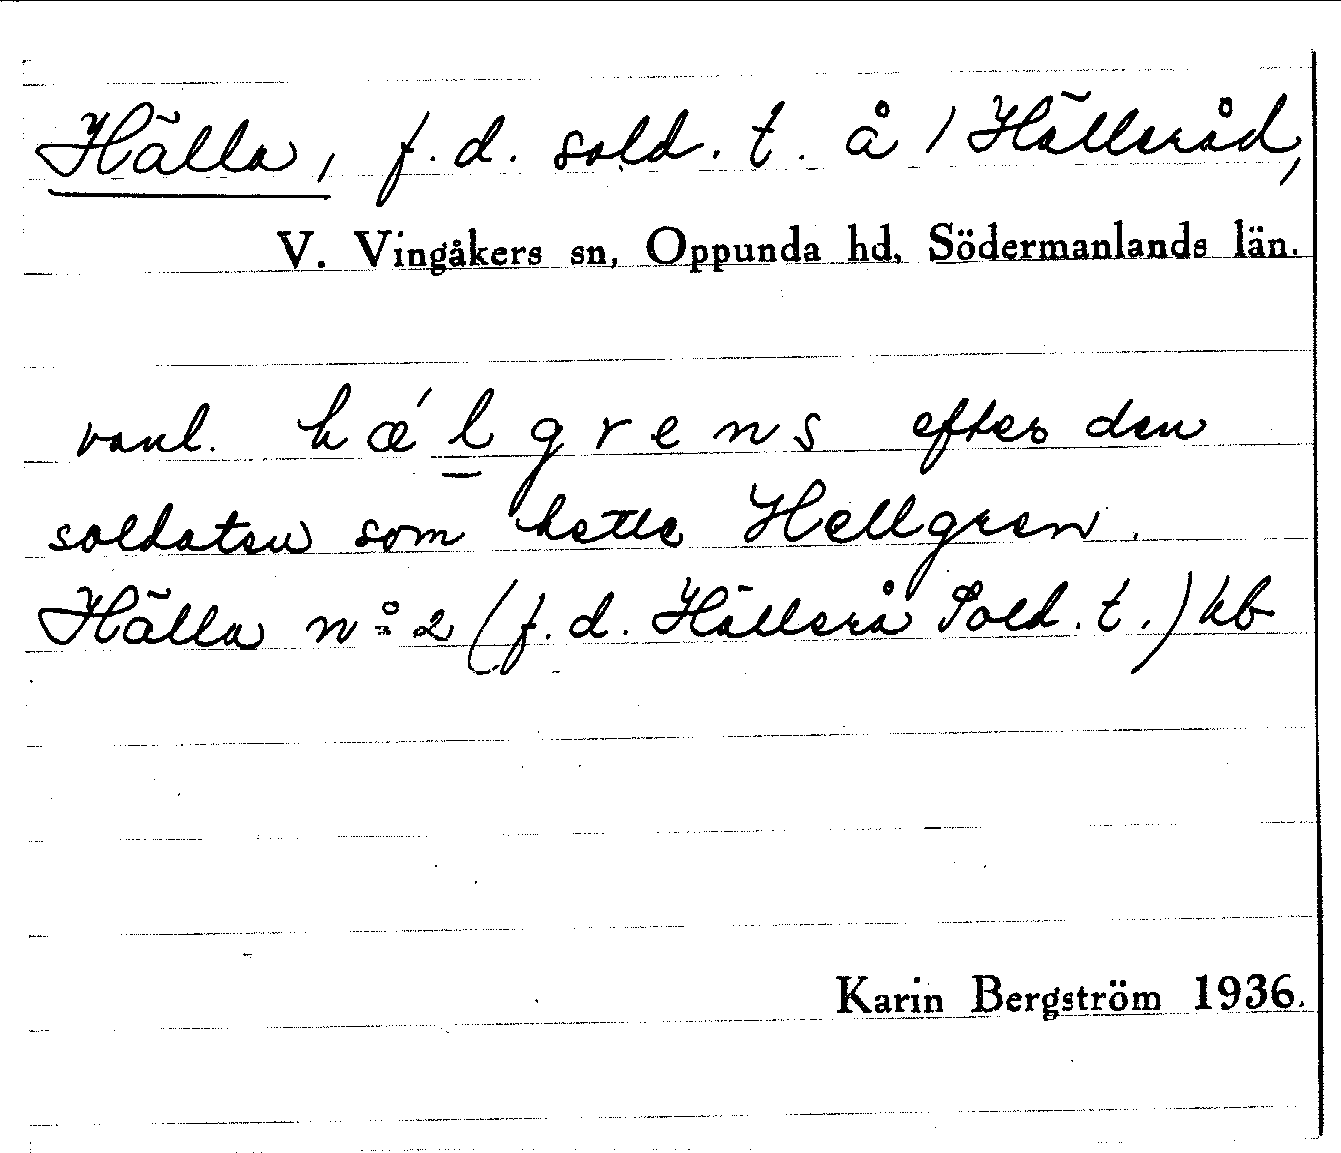 Hälla, f.d. sold. t. å / Hällsråd,
V. Vingåkers sn, Oppunda hd, Södermanlands län.
vanl. hǽlgrens efter den
soldaten som hette Hellgren.
Hälla nº 2 (f.d. Hällerå Sold. t.) kb
Karin Bergström 1936.